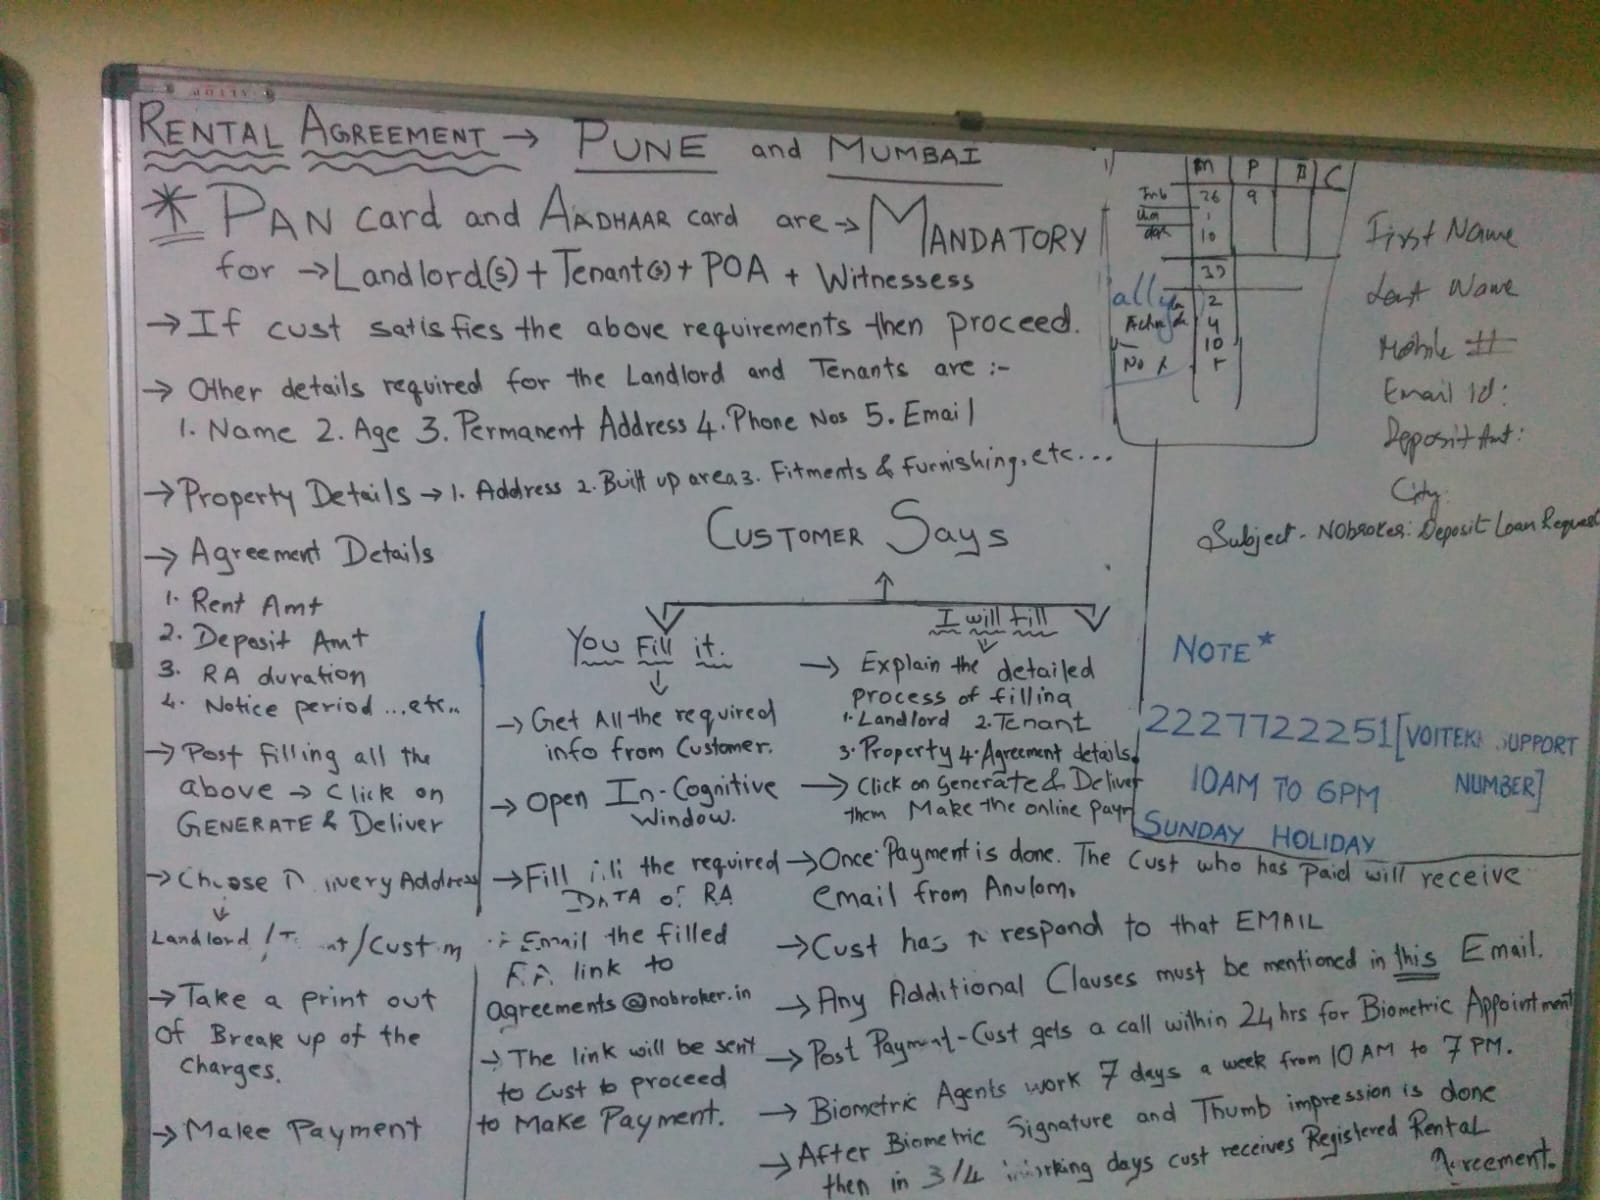 RENTAL AGREEMENT → PUNE and MUMBAI
* PAN card and AADHAAR card are → MANDATORY
for → Landlord(s) + Tenant(s) + POA + Witnessess
→ If cust satisfies the above requirements then proceed.
→ Other details required for the Landlord and Tenants are :-
1. Name 2. Age 3. Permanent Address 4. Phone Nos 5. Email
→ Property Details → 1. Address 2. Built up area 3. Fitments & Furnishing, etc...
→ Agreement Details
1. Rent Amt
2. Deposit Amt
3. RA duration
4. Notice period ...etc..
→ Post filling all the
above → Click on
GENERATE & Deliver
→ Choose Address
↓
Landlord /
→ Take a print out
of Break up of the
charges.
→ Make Payment
CUSTOMER Says
You Fill it.
↓
→ Get All the required
info from Customer.
→ Open In-Cognitive
Window.
→ Fill the required
DATA of RA
Email the filled
link to
agreements@nobroker.in
→ The link will be sent
to cust to proceed
to Make Payment.
I will fill
→ Explain the detailed
process of filling
1. Landlord 2. Tenant
3. Property 4. Agreement details.
→ Click on Generate & Deliver
them Make the online
→ Once Payment is done. The Cust who has paid will receive
email from Anulom.
→ Cust has respond to that EMAIL
→ Any Additional Clauses must be mentioned in this Email.
→ Post Payment - Cust gets a call within 24 hrs for Biometric Appointment
→ Biometric Agents work 7 days a week from 10 AM to 7 PM.
→ After Biometric Signature and Thumb impression is done
then in 3/4 working days cust receives Registered Rental
Agreement.
M P C
26 9
1
10
2
4
10
No
First Name
Last Name
Mobile #
Email Id:
Deposit Amt:
City:
Subject - NObroker: Deposit Loan Request
NOTE*
2227722251 [VOITEKK SUPPORT
NUMBER]
10AM TO 6PM
SUNDAY HOLIDAY